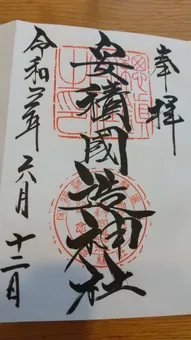 奉拝
安積國造神社
令和二年六月十二日